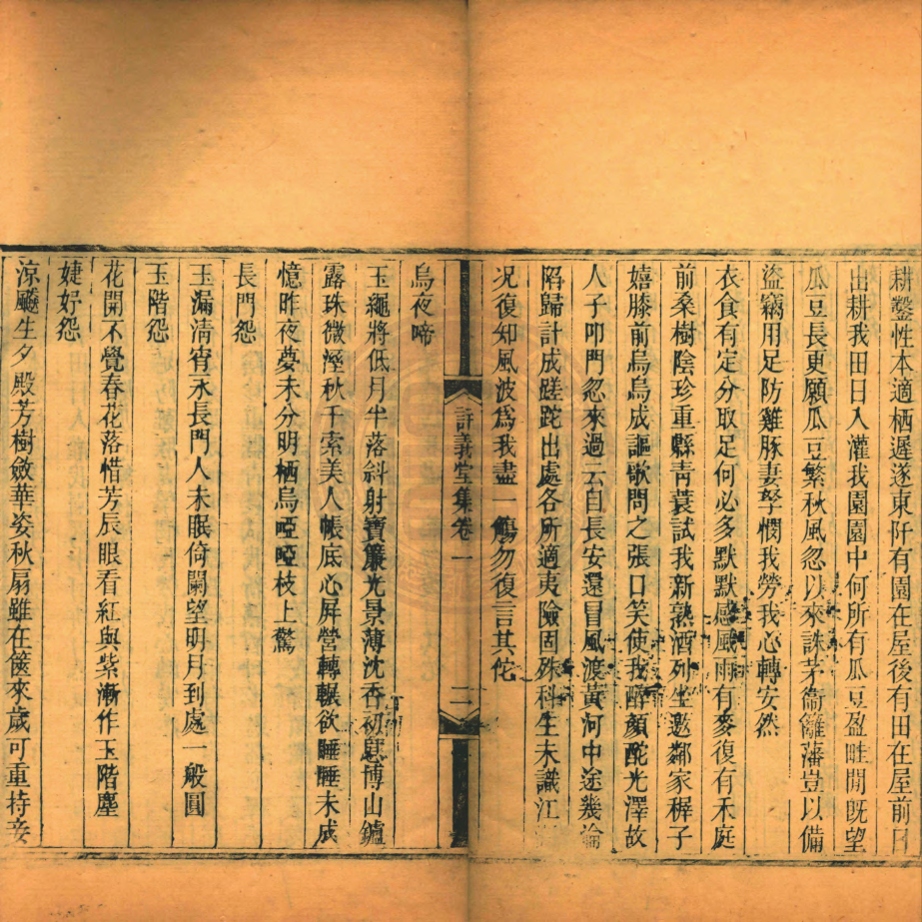 耕鑿性本適栖遲遂東阡有園在屋後有田在屋前日
出耕我田日入灌我園園中何所有瓜豆盈畦間既望
瓜豆長更願瓜豆繁秋風忽以來誅茅衞籬藩豈以備
盜竊用足防雞豚妻孥憫我勞我心轉安然
衣食有定分取足何必多默默感風雨有麥復有禾庭
前桑樹陰珍重緜靑蓑試我新熟酒列坐邀鄰家稺子
嬉膝前烏烏成謳歌問之張口笑使我醉顏酡光澤故
人子叩門忽來過云自長安還冒風渡黃河中途幾淪
陷歸計成蹉跎出處各所適夷險固殊科生未識江
况復知風波爲我盡一觴勿復言其佗
詳義堂集卷一
二
烏夜啼
玉繩將低月半落斜射寶簾光景薄沈香初息博山鑪
露珠微溼秋千索美人帳底心屏營轉輾欲睡睡未成
憶昨夜夢未分明栖烏啞啞枝上驚
長門怨
玉漏淸宵永長門人未眠倚闌望明月到處一般圓
玉階怨
花開不覺春花落惜芳辰眼看紅與紫漸作玉階塵
婕妤怨
涼飈生夕殿芳樹斂華姿秋扇雖在篋來歲可重持妾